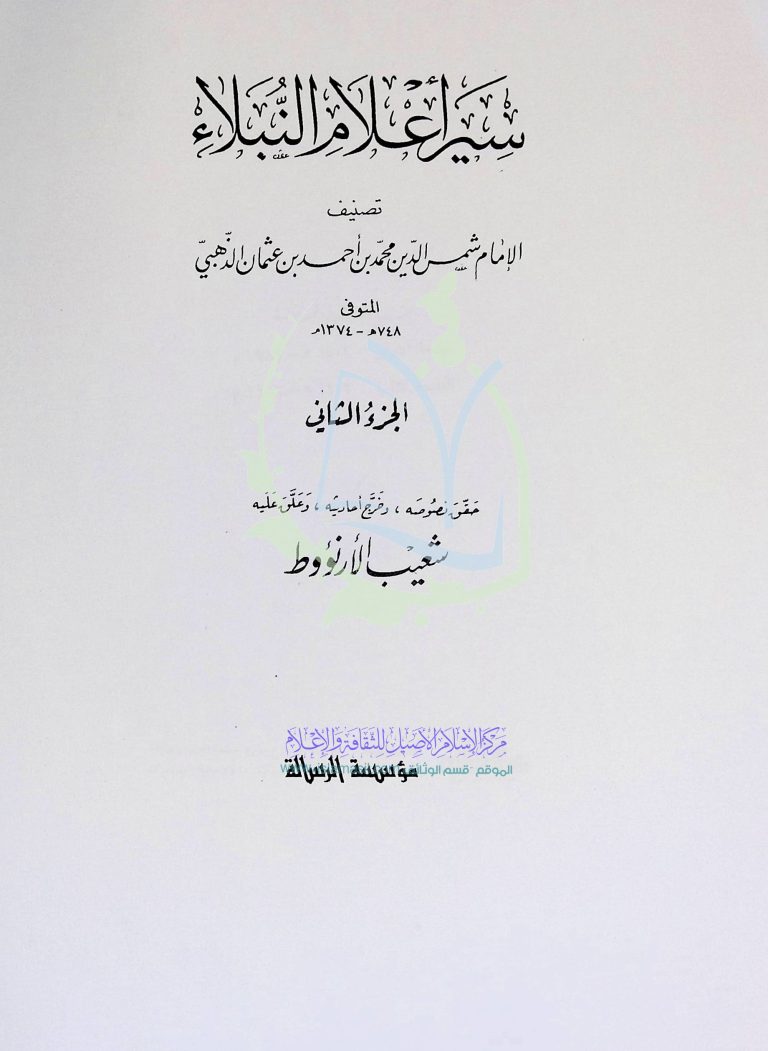 سِيَر أَعْلَامِ النُّبَلَاءِ
تصنيف
الإمَام شمس الدّين محمّد بن أحمد بن عثمان الذّهبيّ
المتوفى
٧٤٨ه‍ - ١٣٧٤م
الجزءُ الثاني
حَقّقَ نصُوصَه ، وخَرَّج أحاديثه ، وَعَلَّقَ عَلَيه
شعيب الأرنؤوط
مركز الإسلام الأصيل للثقافة والإعلام
مؤسسة الرسالة
الموقع - قسم الوثائق